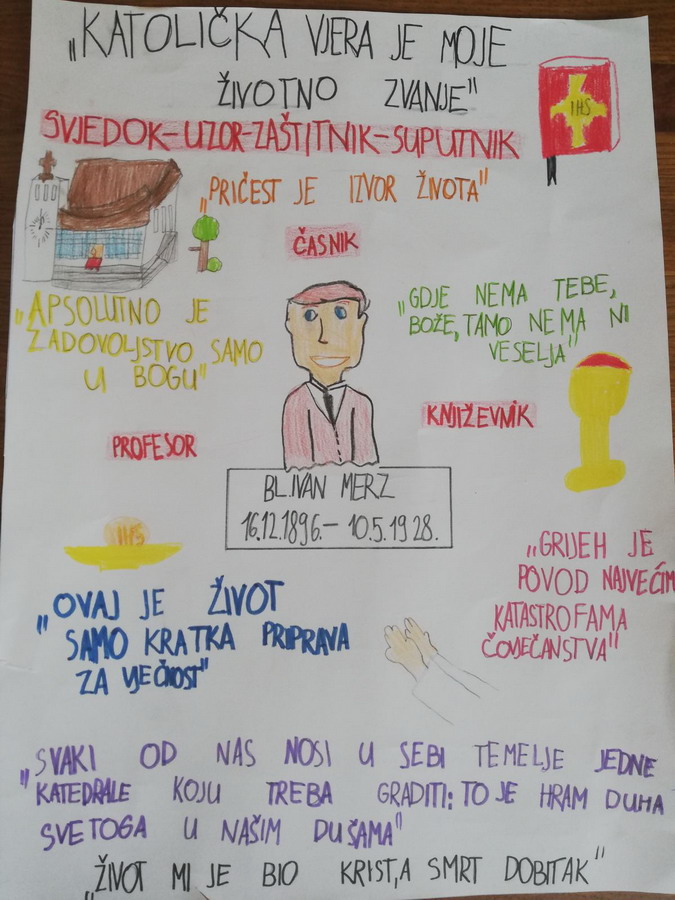 „KATOLIČKA VJERA JE MOJE
ŽIVOTNO ZVANJE"
SVJEDOK-UZOR-ZAŠTITNIK-SUPUTNIK
IHS
„PRIČEST JE IZVOR ŽIVOTA"
ČASNIK
„APSOLUTNO JE
ZADOVOLJSTVO SAMO
U BOGU"
„GDJE NEMA TEBE,
BOŽE, TAMO NEMA NI
VESELJA"
PROFESOR
KNJIŽEVNIK
BL. IVAN MERZ
16.12.1896.- 10.5.1928.
IHS
„OVAJ JE ŽIVOT
SAMO KRATKA PRIPRAVA
ZA VJEČNOST"
„GRIJEH JE
POVOD NAJVEĆIM
KATASTROFAMA
ČOVJEČANSTVA"
„SVAKI OD NAS NOSI U SEBI TEMELJE JEDNE
KATEDRALE KOJU TREBA GRADITI: TO JE HRAM DUHA
SVETOGA U NAŠIM DUŠAMA"
„ŽIVOT MI JE BIO KRIST, A SMRT DOBITAK"